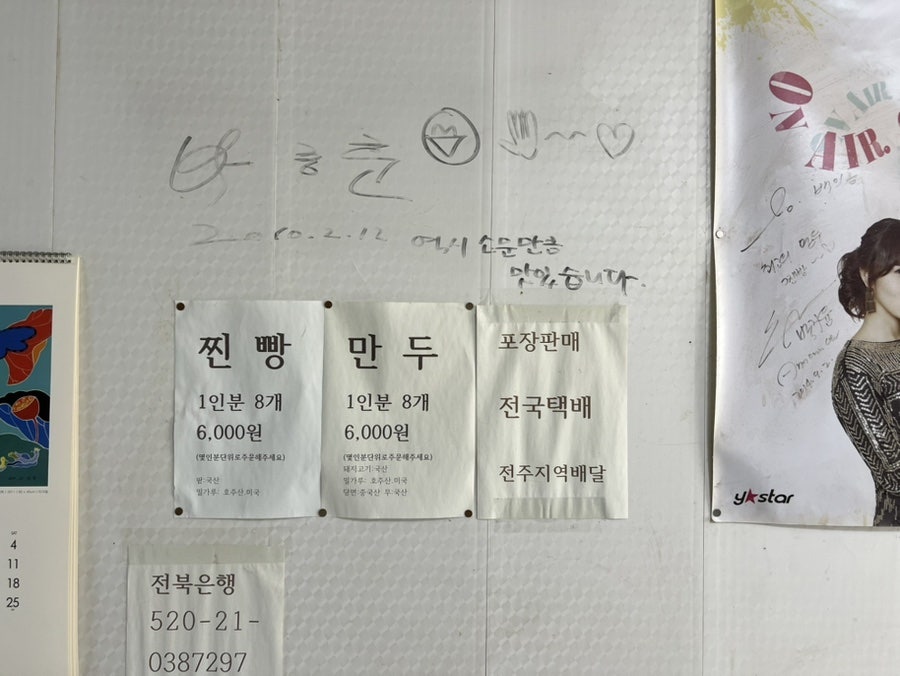 2010.2.12
역시 소문만큼
맛있습니다.
찐 빵
1인분 8개
6,000원
(몇인분단위로주문해주세요)
팥:국산
밀가루: 호주산.미국
만 두
1인분 8개
6,000원
(몇인분단위로주문해주세요)
돼지고기:국산
밀가루: 호주산.미국
당면:중국산 무:국산
포장판매
전국택배
전주지역배달
전북은행
520-21-
0387297
4
11
18
25
ON
AIR.
ON AIR
최고의 만두
ystar